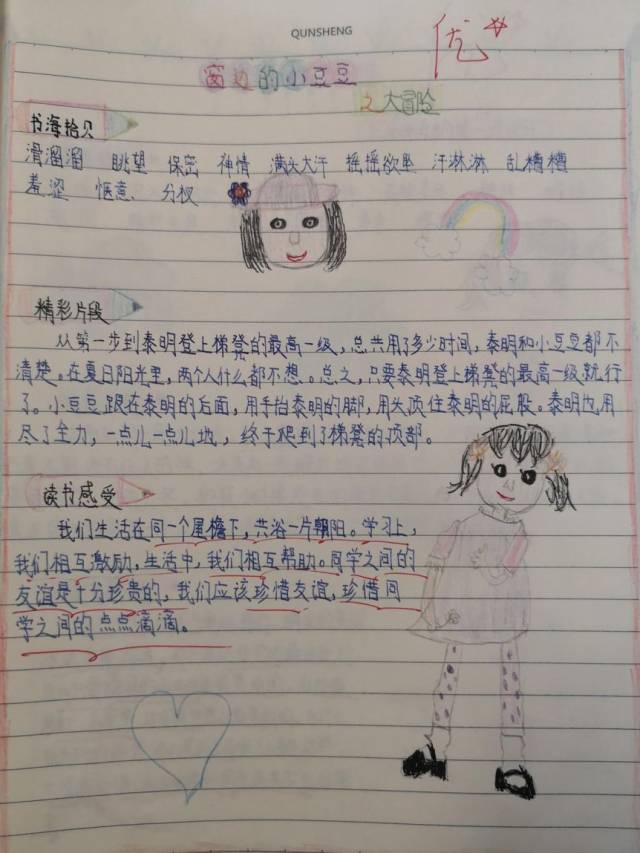 QUNSHENG
优
窗边的小豆豆
之大冒险
书海拾贝
滑溜溜 眺望 保密 神情 满头大汗 摇摇欲坠 汗淋淋 乱糟糟
羞涩 惬意 分杈
精彩片段
从第一步到泰明登上梯凳的最高一级,总共用了多少时间,泰明和小豆豆都不
清楚。在夏日阳光里,两个人什么都不想。总之,只要泰明登上梯凳的最高一级就行
了。小豆豆跟在泰明的后面,用手抬泰明的脚,用头顶住泰明的屁股。泰明也用
尽了全力,一点儿一点儿地,终于爬到了梯凳的顶部。
读书感受
我们生活在同一个屋檐下,共浴一片朝阳。学习上,
我们相互激励,生活中,我们相互帮助。同学之间的
友谊是十分珍贵的,我们应该珍惜友谊,珍惜同
学之间的点点滴滴。